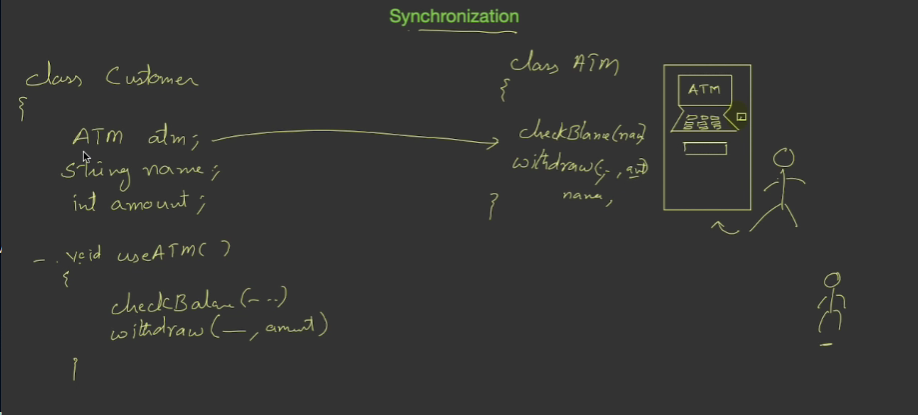 Synchronization
class Customer
{
ATM atm;
string name;
int amount;
void useATM( )
{
checkBalan(- ..)
withdraw(—, amunt)
}
class ATM
{
checkBlane(nam)
withdraw( , amt)
name,
}
ATM